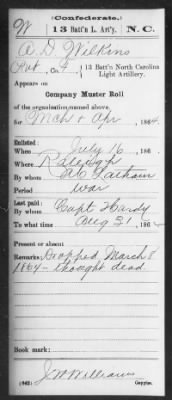 (Confederate.)
W 13 Batt'n L. Art'y. N. C.
A. D. Wilkins
Pvt, Co. F, 13 Batt'n North Carolina
Light Artillery.
Appears on
Company Muster Roll
of the organization named above,
for Mch & Apr, 1864.
Enlisted:
When July 16, 186
Where Raleigh
By whom A C Latham
Period war
Last paid:
By whom Capt Hardy
To what time Aug 31, 186
Present or absent
Remarks: Dropped March 8
1864 - thought dead.
Book mark:
J W Williams
(642) Copyist.